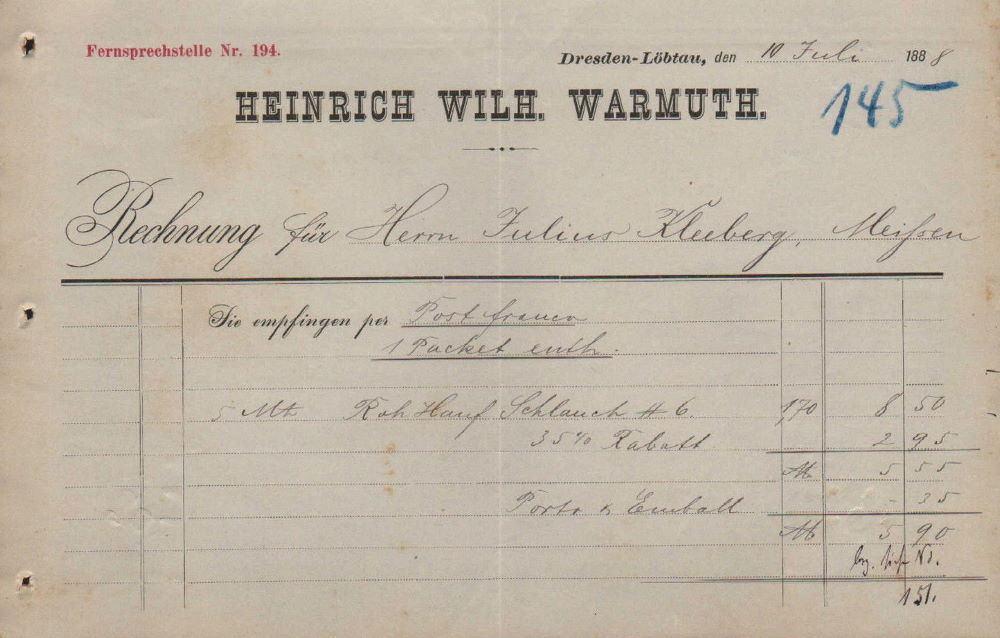 Fernsprechstelle Nr. 194.
Dresden-Löbtau, den 10 Juli 1888
HEINRICH WILH. WARMUTH.
145
Rechnung für Herrn Julius Kleeberg, Meißen
Sie empfingen per Post franco
1 Packet enth.
5 Mtr Roh Hanf Schlauch # 6. 1,70 8 50
35% Rabatt 2 95
M 5 55
Porto & Emball - 35
M 5 90
No.
151.